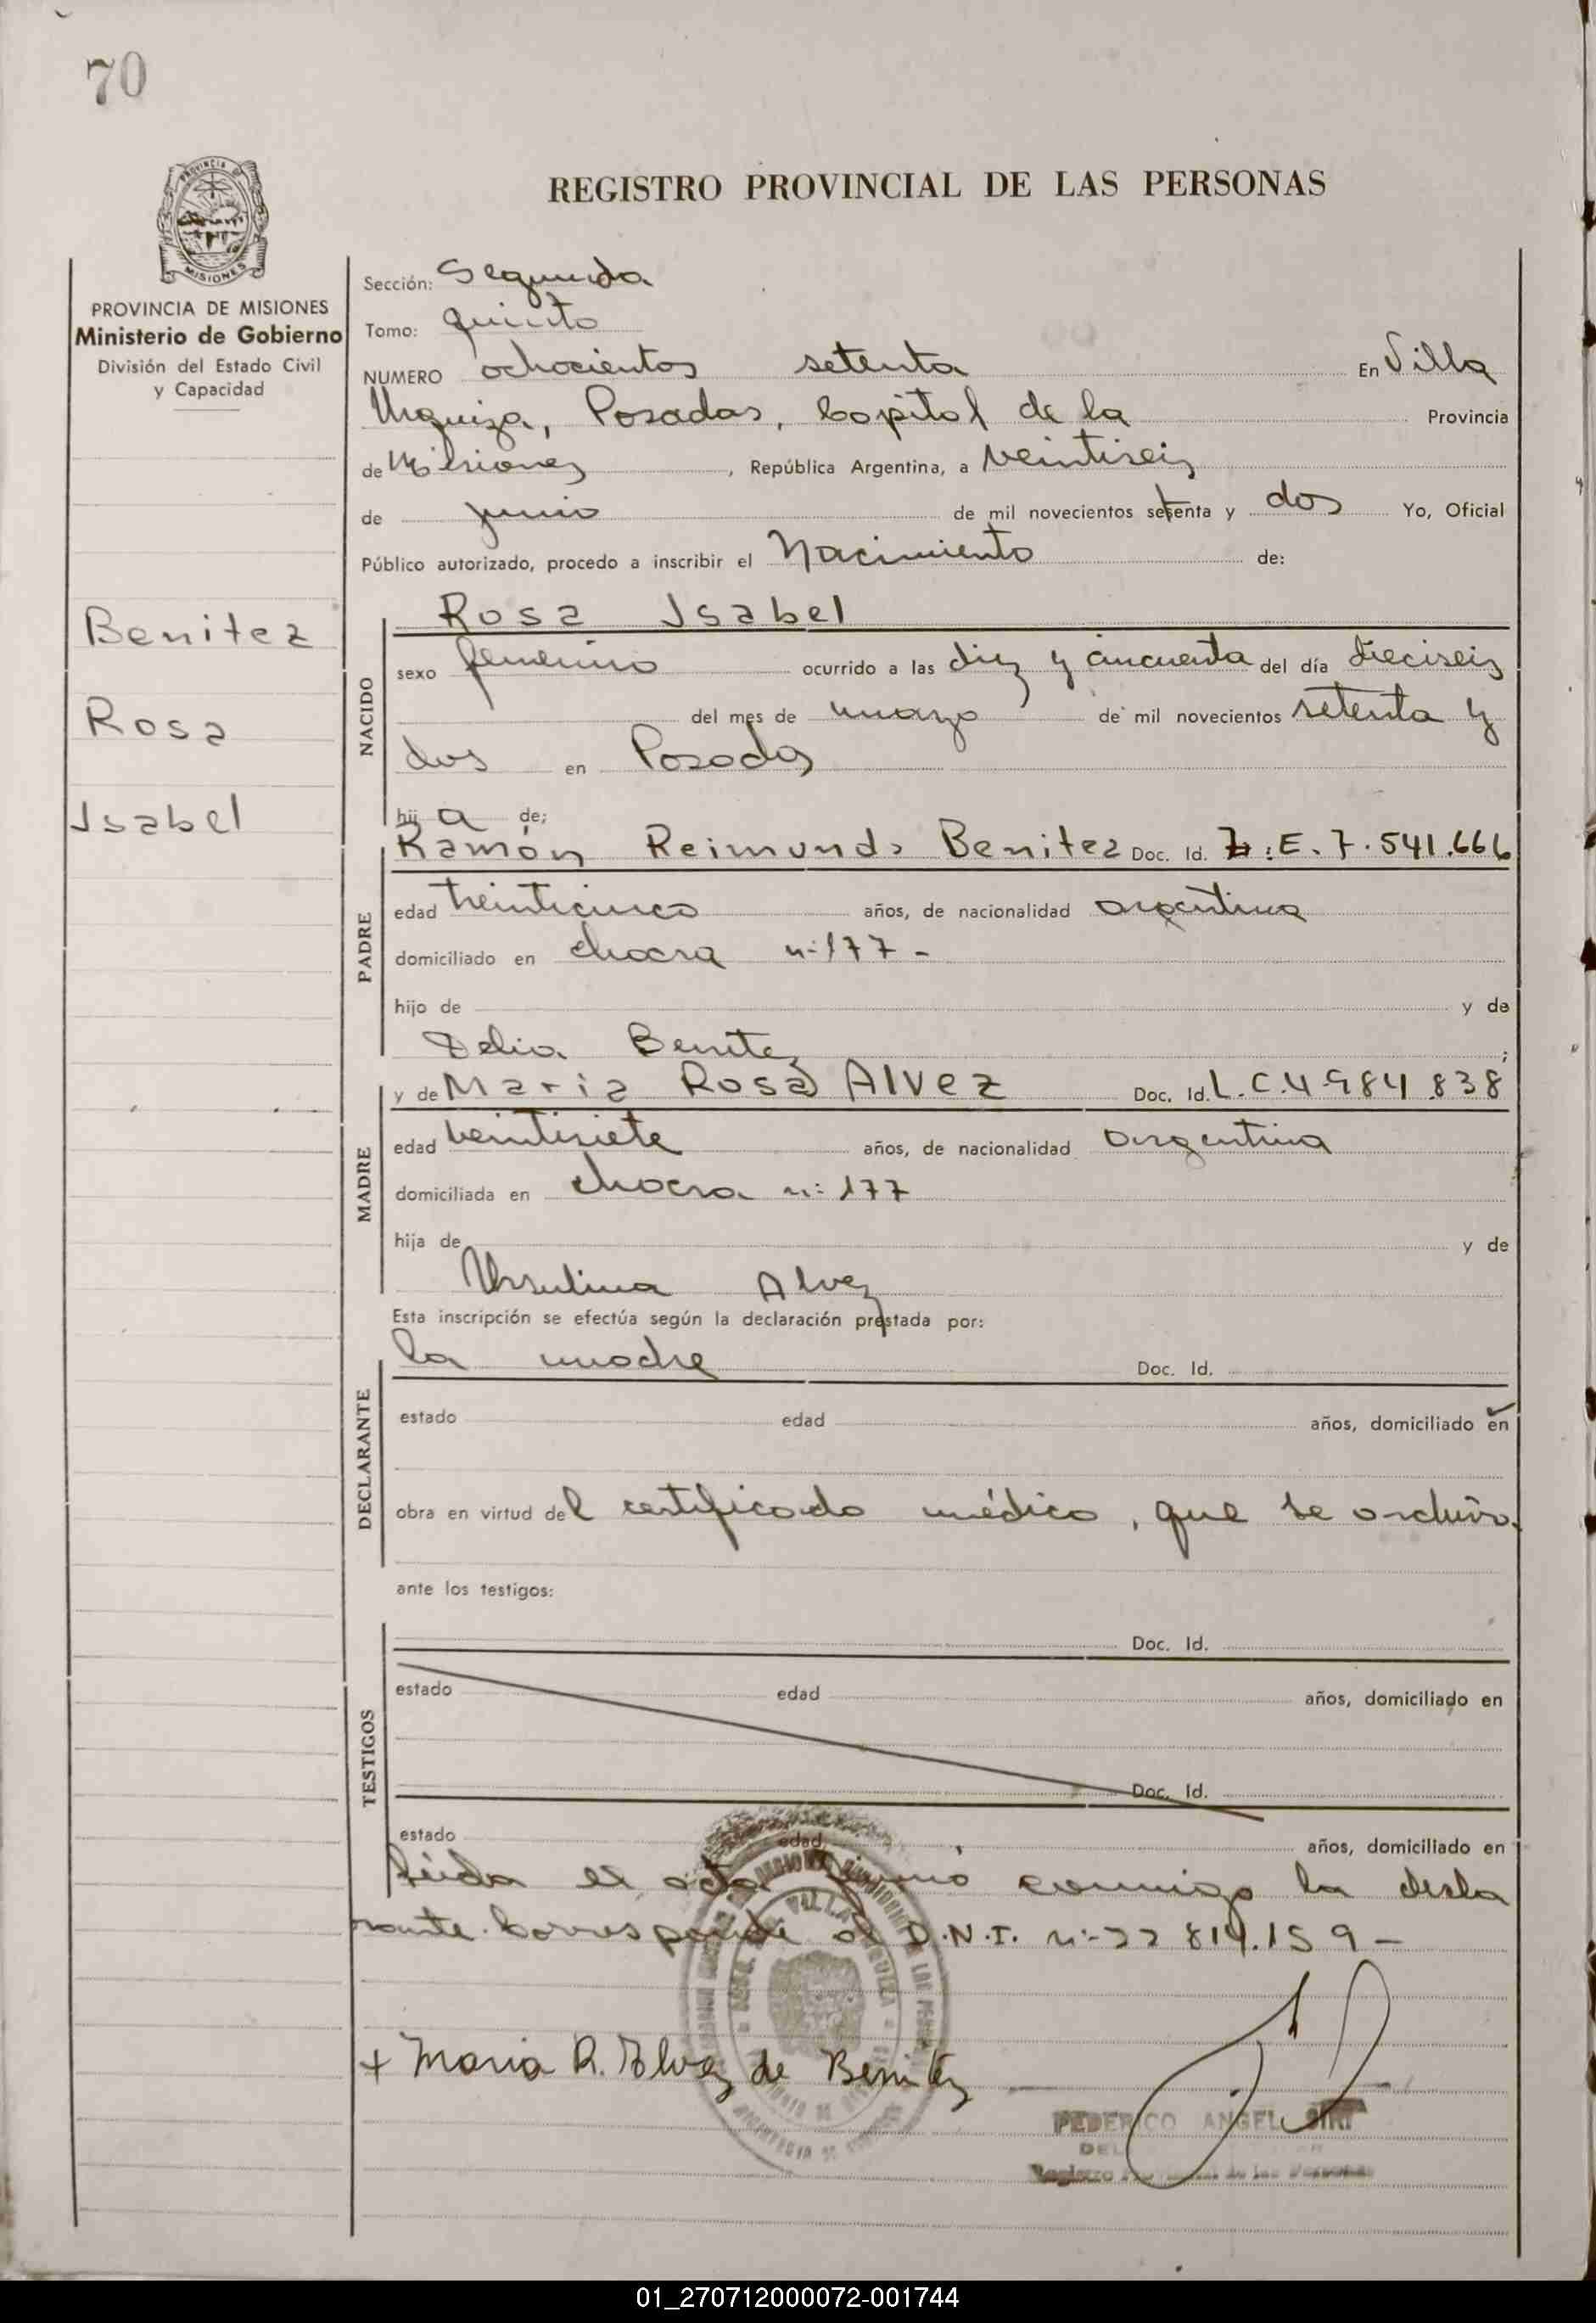 70
PROVINCIA
MISIONES
REGISTRO PROVINCIAL DE LAS PERSONAS
PROVINCIA DE MISIONES
Ministerio de Gobierno
División del Estado Civil
y Capacidad
Sección: Segunda
Tomo: quinto
NUMERO ochocientos setenta En Villa
Urquiza, Posadas, Capital de la Provincia
de Misiones, República Argentina, a veintiseis
de junio de mil novecientos setenta y dos Yo, Oficial
Público autorizado, procedo a inscribir el Nacimiento de:
Benitez
Rosa
Isabel
NACIDO
Rosa Isabel
sexo femenino ocurrido a las diez y cincuenta del día dieciseis
del mes de marzo de mil novecientos setenta y
dos en Posadas
hij a de;
PADRE
Ramón Reimundo Benitez Doc. Id. : E. 7.541.666
edad treinticinco años, de nacionalidad argentina
domiciliado en chacra n: 177 -
hijo de y de
Delia Benitez ;
MADRE
y de Maria Rosa Alvez Doc. Id. L.C. 4.984.838
edad veintisiete años, de nacionalidad argentina
domiciliada en chacra n: 177
hija de y de
Ursulina Alvez
Esta inscripción se efectúa según la declaración prestada por:
DECLARANTE
la madre Doc. Id.
estado edad años, domiciliado en
obra en virtud del certificado médico, que se archiva.
ante los testigos:
TESTIGOS
Doc. Id.
estado edad años, domiciliado en
Doc. Id.
estado edad años, domiciliado en
leida el acta firmó conmigo la decla
rante. Corresponde al D.N.I. n:-22 814.159 -
+ Maria R. Alvez de Benitez
FEDERICO ANGEL SIRI
DEL
Registro Provincial de las Personas
01_270712000072-001744